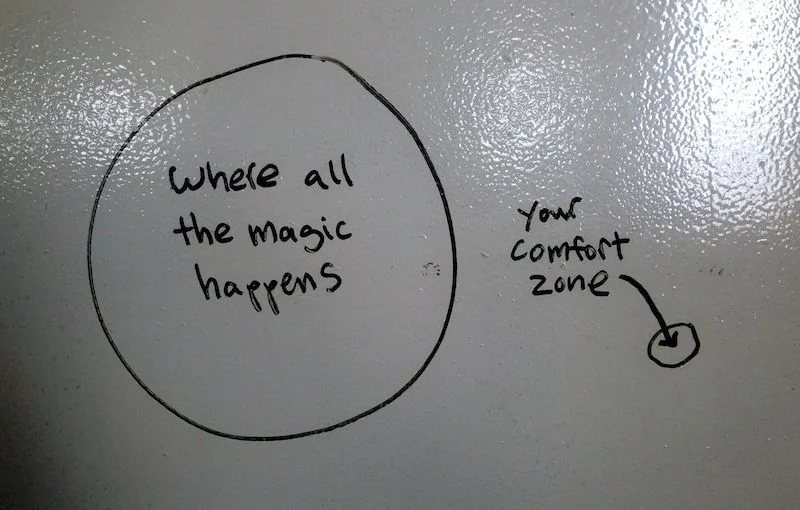 Where all
the magic
happens
Your
comfort
zone